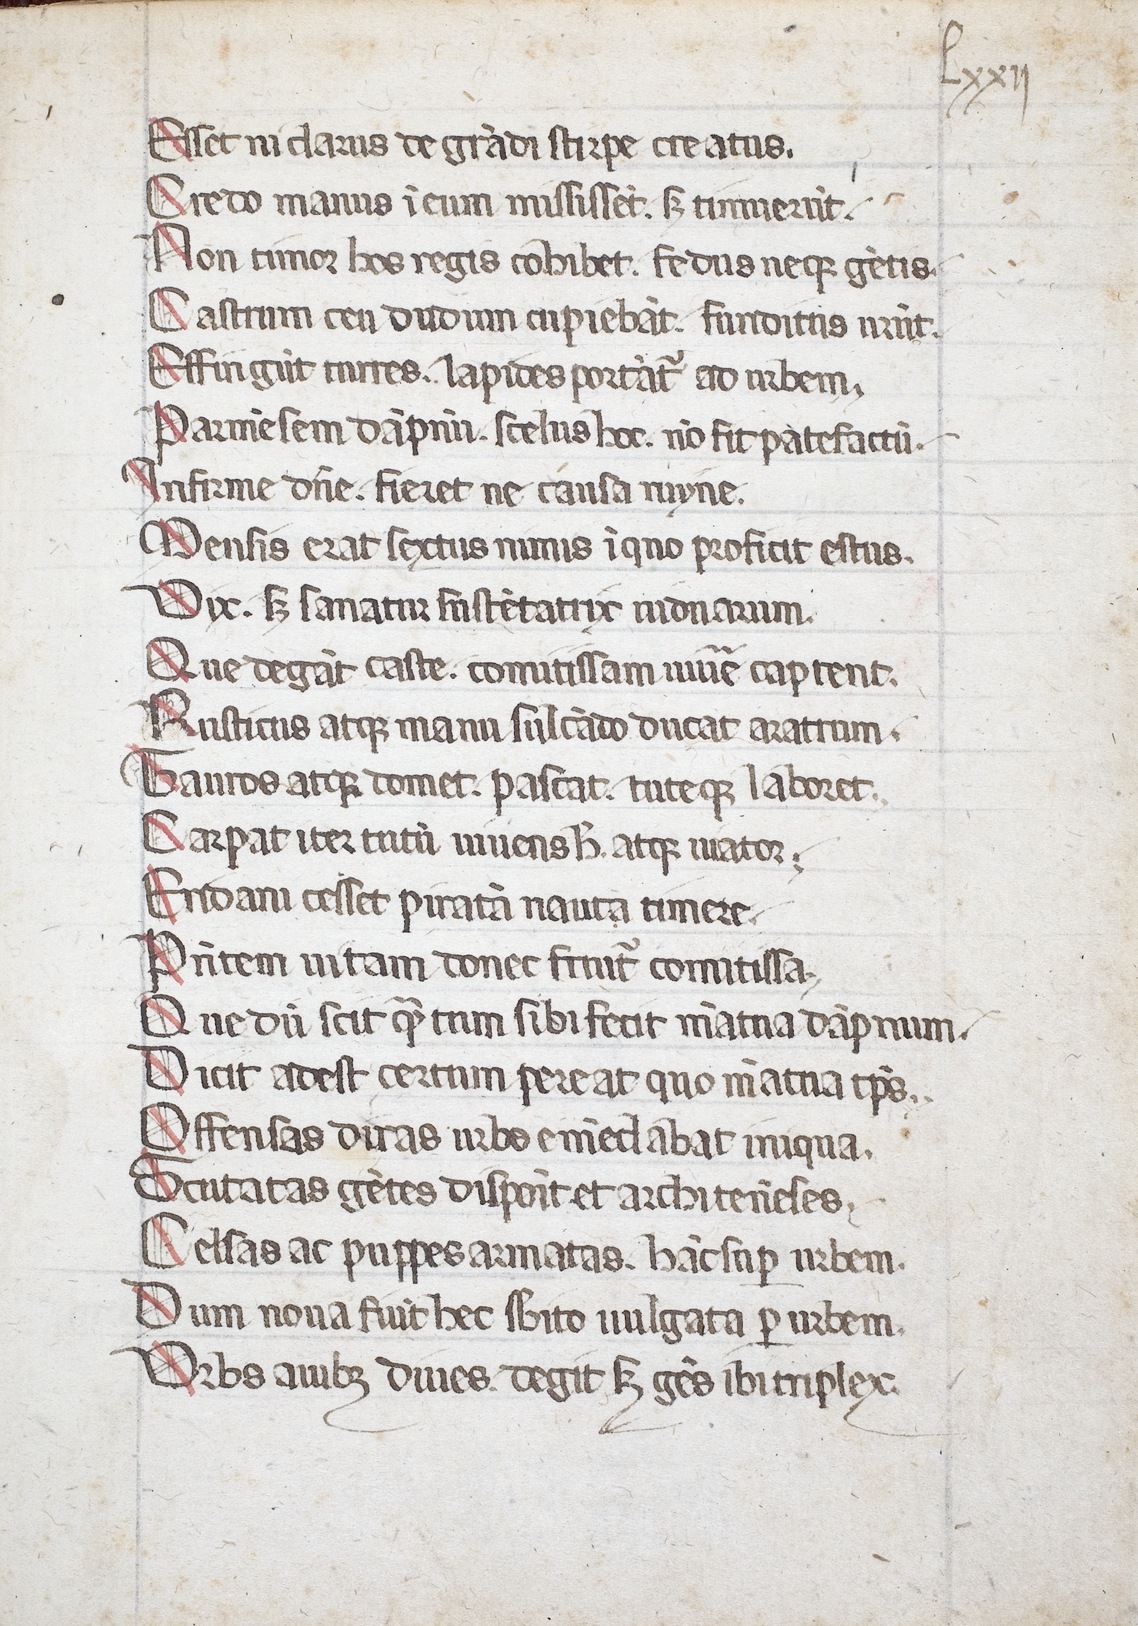 Lxxij
Esset ni clarus de grādi stirpe creatus.
Credo manus ī eum mississēt. sꝫ timuerūt.
Non timor hos regis cohibet. fedus neqꝫ gētis.
Castrum ceu dudum cupiebāt. funditus urūt.
Effingūt turres. lapides portāt᷑ ad urbem.
Parmēsem dāpnū. scelus hoc. nō fit patefactū.
Infirme dn̄e. fieret ne causa ruyne.
Mensis erat sextus nimis ī quo proficit estus.
Vix. sꝫ sanatur sustētatrix uiduarum.
Que degāt caste. comitissam uiuē̄ captent.
Rusticus atqꝫ manu sulcādo ducat aratrum.
Tauros atqꝫ domet. pascat. tuteqꝫ laboret.
Carpat iter tutū uiuens h̄. atqꝫ uiator.
Eridani cesset piratā nauta timere.
Pn̄tem uitam donec fruit᷑ comitissa.
Que dū scit qᷓtum sibi fecit mātua dāpnum.
Dicit adest certum pereat quo mātua tp̄s.
Offensas diras urbs emēdabat iniqua.
Scutatas gētes dispōit et architenēses.
Celsas ac puppes armatas. hāc suꝑ urbem.
Dum noua fuit hec sb̄ito uulgata ꝑ urbem.
Vrbs ciuibꝫ diues. degit sꝫ gēs ibi triplex.